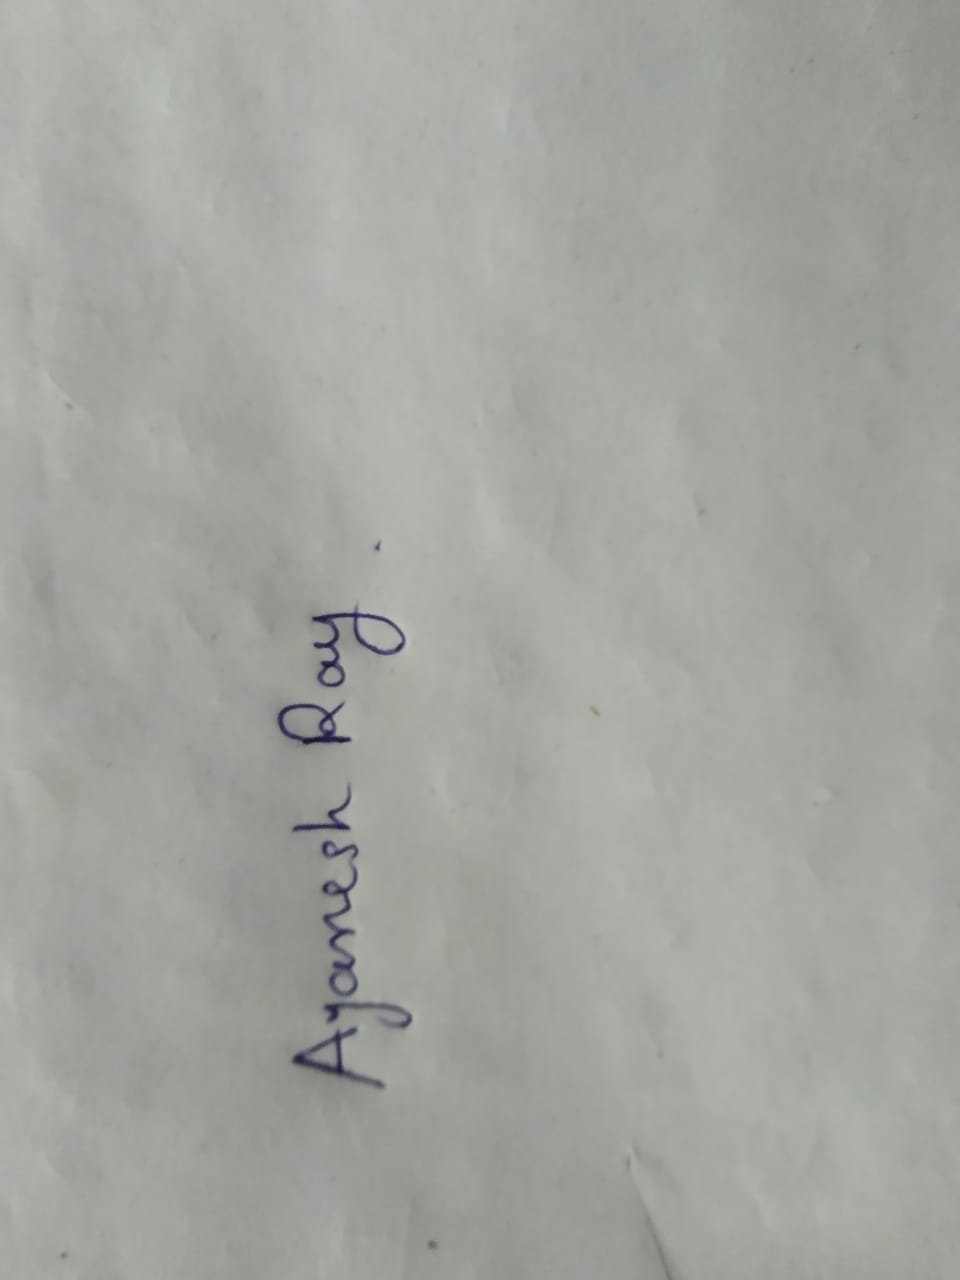 Ayanesh Ray.